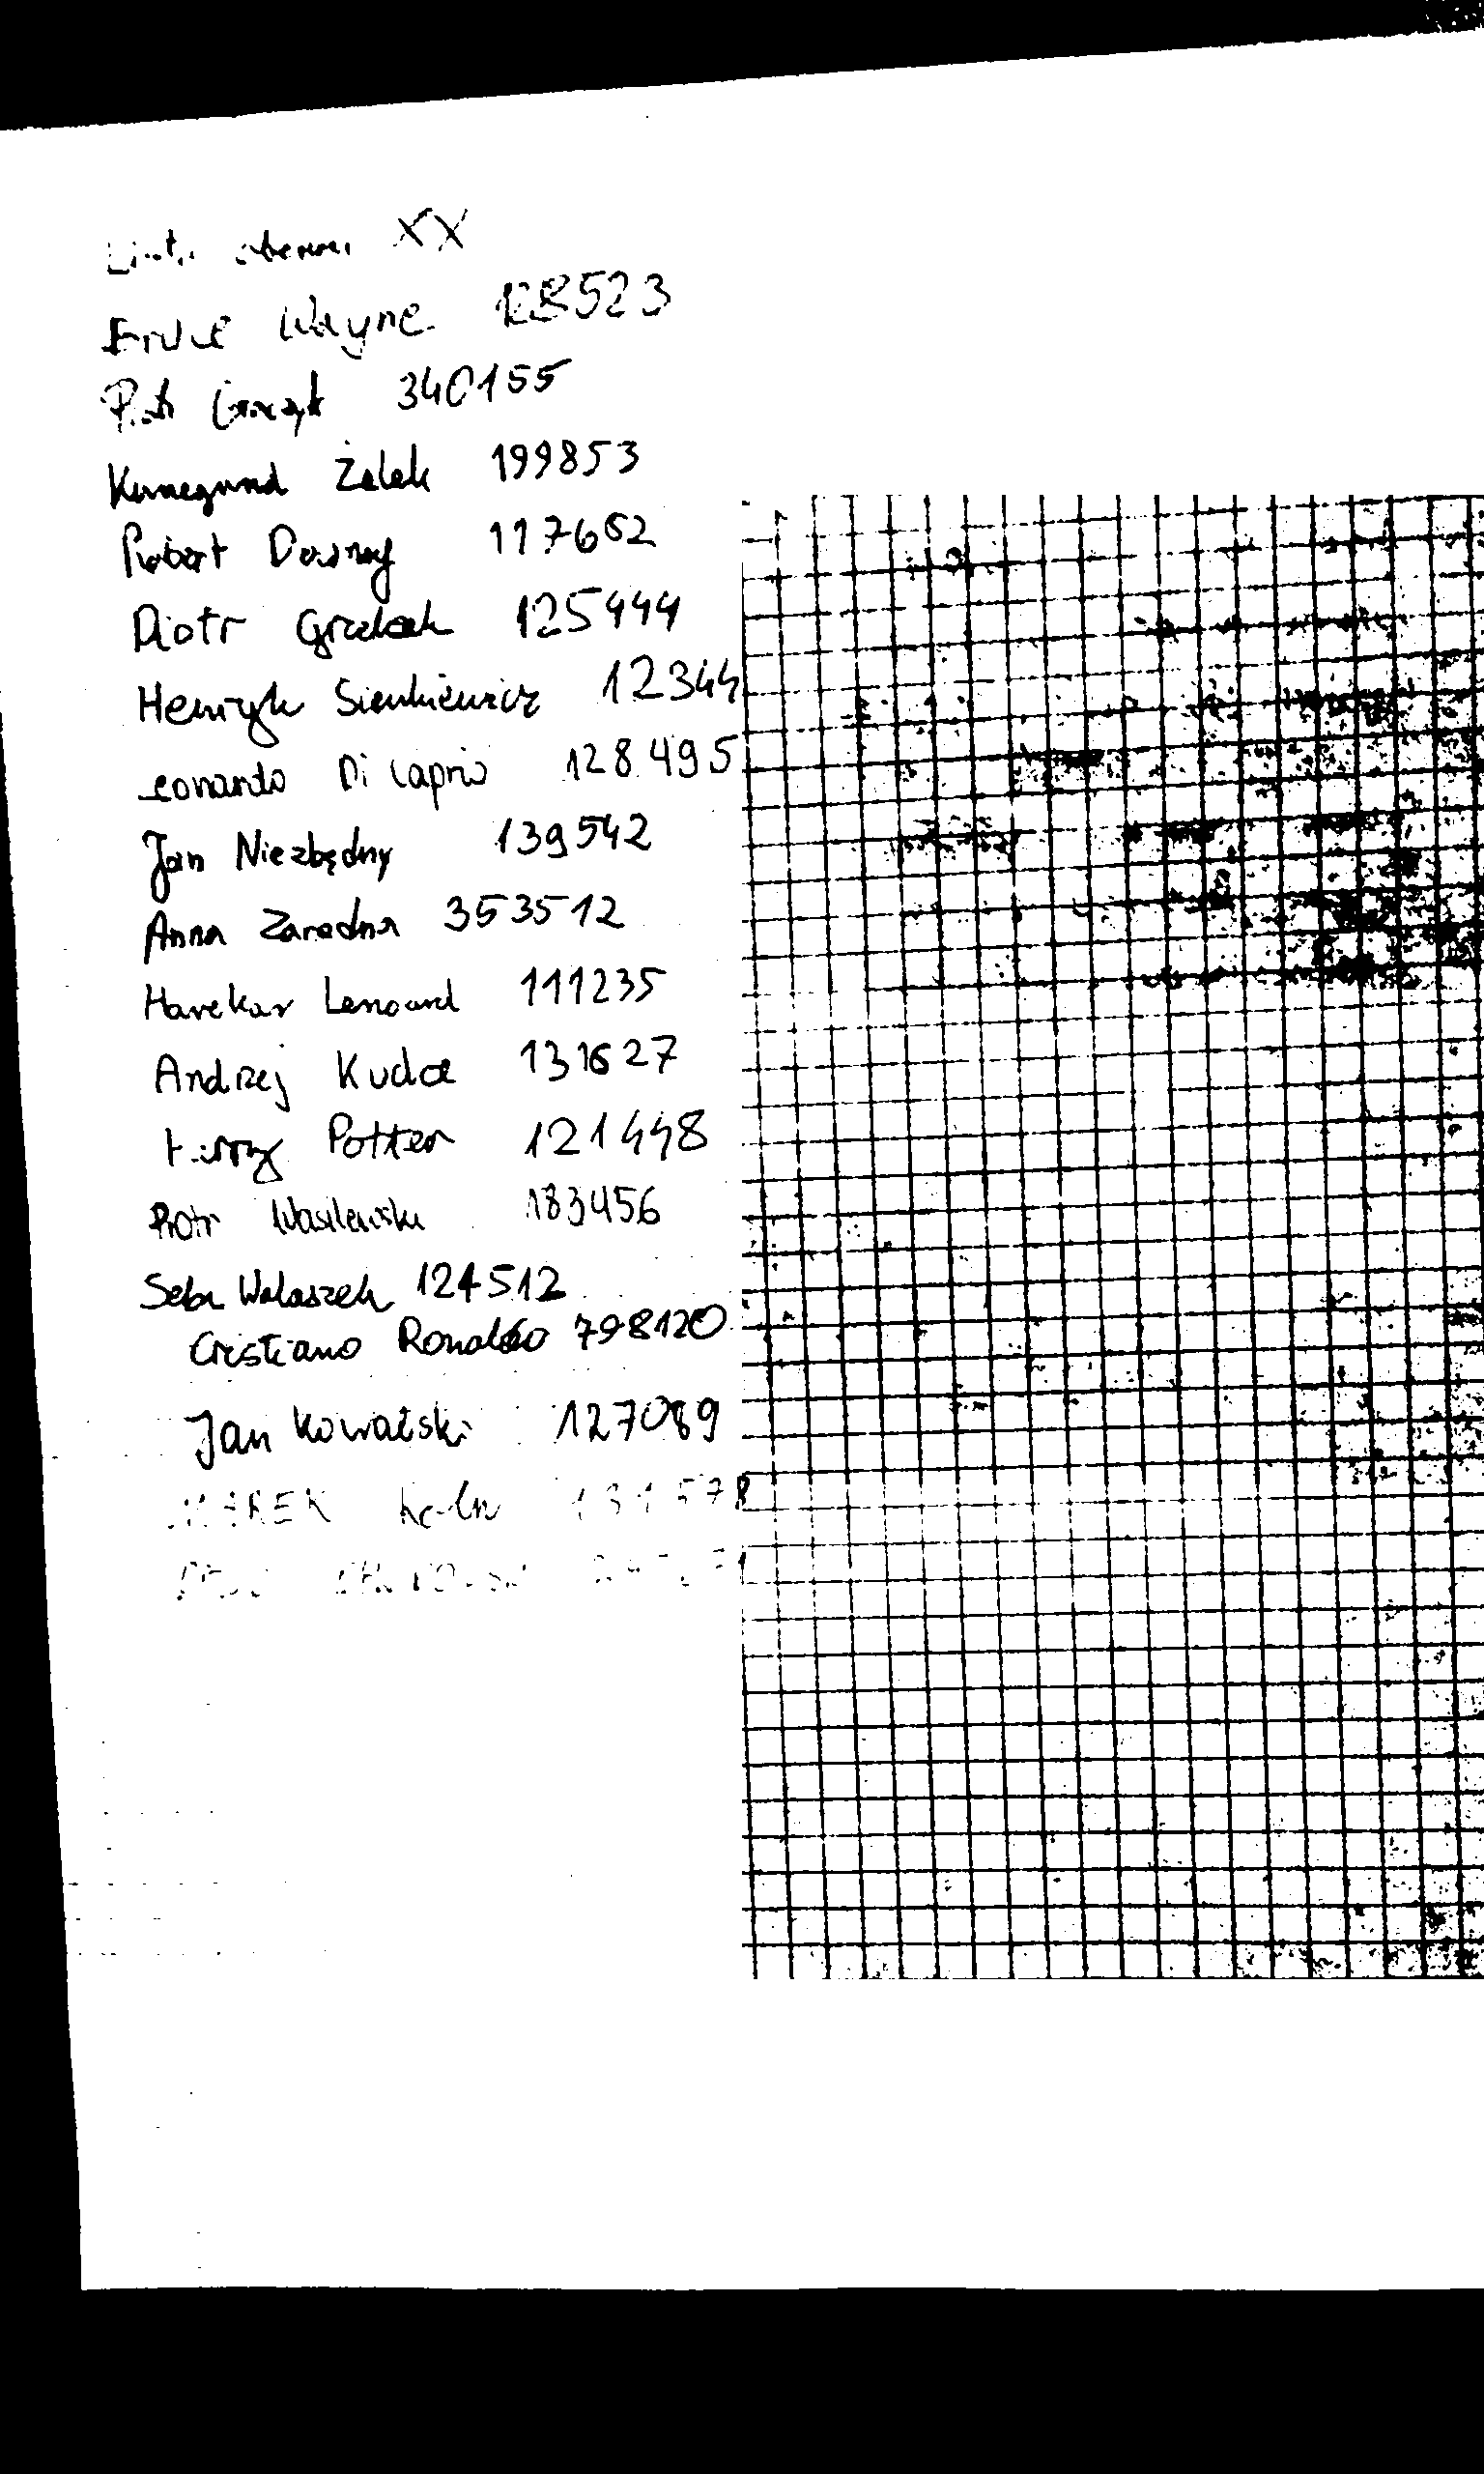 XX
Wayne 128523
Piotr 340155
Kunegund Żelek 199853
Robert Downey 117662
Piotr Grzelak 125444
Henryk Sienkiewicz 12344
eonardo Di Caprio 128495
Jan Niezbędny 139542
Anna Zaradna 353512
Harekar Lenoard 111235
Andrzej Kudła 131627
Potter 121448
Piotr Wasilewski 183456
Seba Walaszek 124512
Cristiano Ronaldo 798120
Jan Kowalski 127089
MAREK